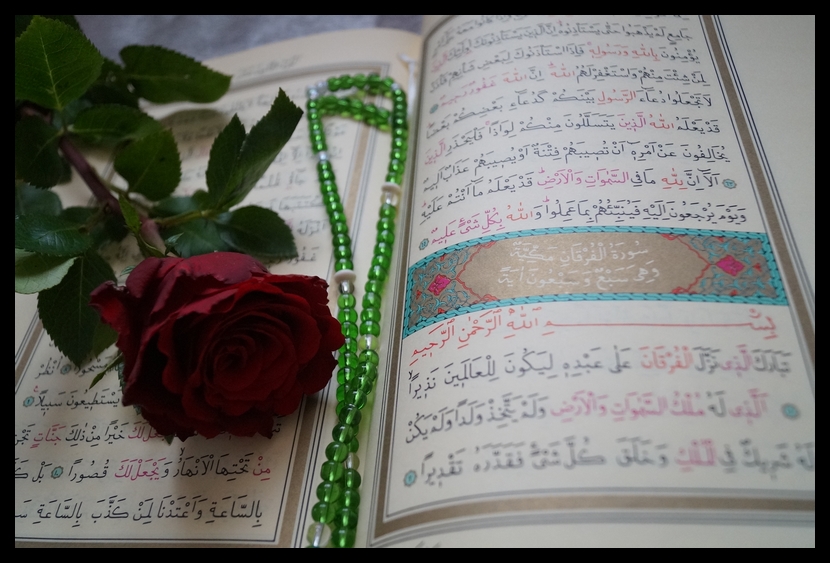 كَانُوا مَعَهُ عَلٰى
جَامِعٍ لَمْ يَذْهَبُوا حَتّٰى يَسْتَأْذِنُوهُ اِنَّ الَّذِينَ يَسْتَأْذِنُونَكَ اُولٰئِكَ الَّذِينَ
يُؤْمِنُونَ بِاللّٰهِ وَرَسُولِهِ فَاِذَا اسْتَأْذَنُوكَ لِبَعْضِ شَأْنِهِمْ فَأْذَنْ
لِمَنْ شِئْتَ مِنْهُمْ وَاسْتَغْفِرْ لَهُمُ اللّٰهَ اِنَّ اللّٰهَ غَفُورٌ رَحِيمٌ
لَا تَجْعَلُوا دُعَاءَ الرَّسُولِ بَيْنَكُمْ كَدُعَاءِ بَعْضِكُمْ بَعْضًا
قَدْ يَعْلَمُ اللّٰهُ الَّذِينَ يَتَسَلَّلُونَ مِنْكُمْ لِوَاذًا فَلْيَحْذَرِ الَّذِينَ
يُخَالِفُونَ عَنْ اَمْرِهِ اَنْ تُصِيبَهُمْ فِتْنَةٌ اَوْ يُصِيبَهُمْ عَذَابٌ اَلِيمٌ
اَلَا اِنَّ لِلّٰهِ مَا فِي السَّمٰوَاتِ وَالْاَرْضِ قَدْ يَعْلَمُ مَا اَنْتُمْ عَلَيْهِ
وَيَوْمَ يُرْجَعُونَ اِلَيْهِ فَيُنَبِّئُهُمْ بِمَا عَمِلُوا وَاللّٰهُ بِكُلِّ شَيْءٍ عَلِيمٌ
سُورَةُ الْفُرْقَانِ مَكِّيَّةٌ
وَهِيَ سَبْعٌ وَسَبْعُونَ اٰيَةً
بِسْمِ اللّٰهِ الرَّحْمٰنِ الرَّحِيمِ
تَبَارَكَ الَّذِي نَزَّلَ الْفُرْقَانَ عَلٰى عَبْدِهِ لِيَكُونَ لِلْعَالَمِينَ نَذِيرًا
اَلَّذِي لَهُ مُلْكُ السَّمٰوَاتِ وَالْاَرْضِ وَلَمْ يَتَّخِذْ وَلَدًا وَلَمْ يَكُنْ
لَهُ شَرِيكٌ فِي الْمُلْكِ وَخَلَقَ كُلَّ شَيْءٍ فَقَدَّرَهُ تَقْدِيرًا
اُنْظُرْ
يَسْتَطِيعُونَ سَبِيلًا
جَعَلَ لَكَ خَيْرًا مِنْ ذٰلِكَ جَنَّاتٍ تَجْرِي
مِنْ تَحْتِهَا الْاَنْهَارُ وَيَجْعَلْ لَكَ قُصُورًا بَلْ
بِالسَّاعَةِ وَاَعْتَدْنَا لِمَنْ كَذَّبَ بِالسَّاعَةِ